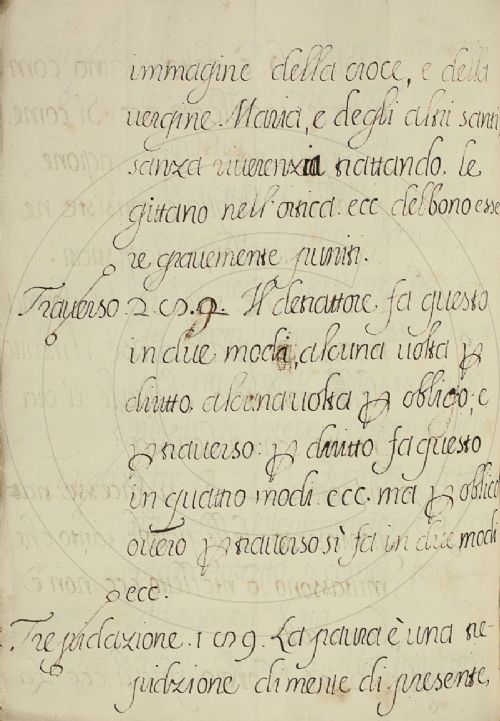 immagine della croce, e della
vergine Maria, e degli altri santi
sanza riverenzia trattando. le
gittano nell'ortica. ecc debbono esse
re gravemente puniti.
Traverso. 2. 9. Il detrattore fa questo
in due modi, alcuna volta ꝑ
diritto. alcuna volta ꝑ obligo, e
ꝑ traverso: ꝑ diritto fa questo
in quattro modi. ecc. ma ꝑ oblico
overo ꝑ traverso si fa in due modi
ecc.
Trepidazione. 1 9. La paura è una tre-
pidzione di mente di presente,